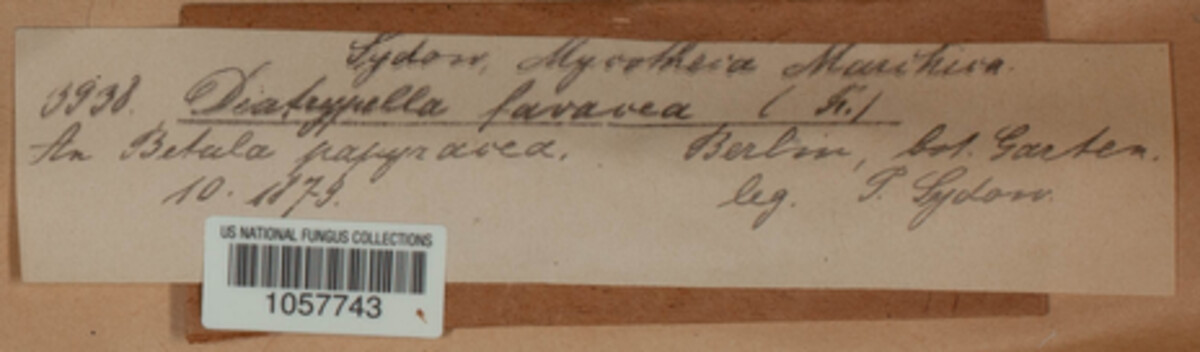 Sydow, Mycotheca Marchica.
3938. Diatrypella favacea (Fr.)
An Betula papyracea. Berlin, bot. Garten.
10. 1879. leg. P. Sydow.
US NATIONAL FUNGUS COLLECTIONS
1057743